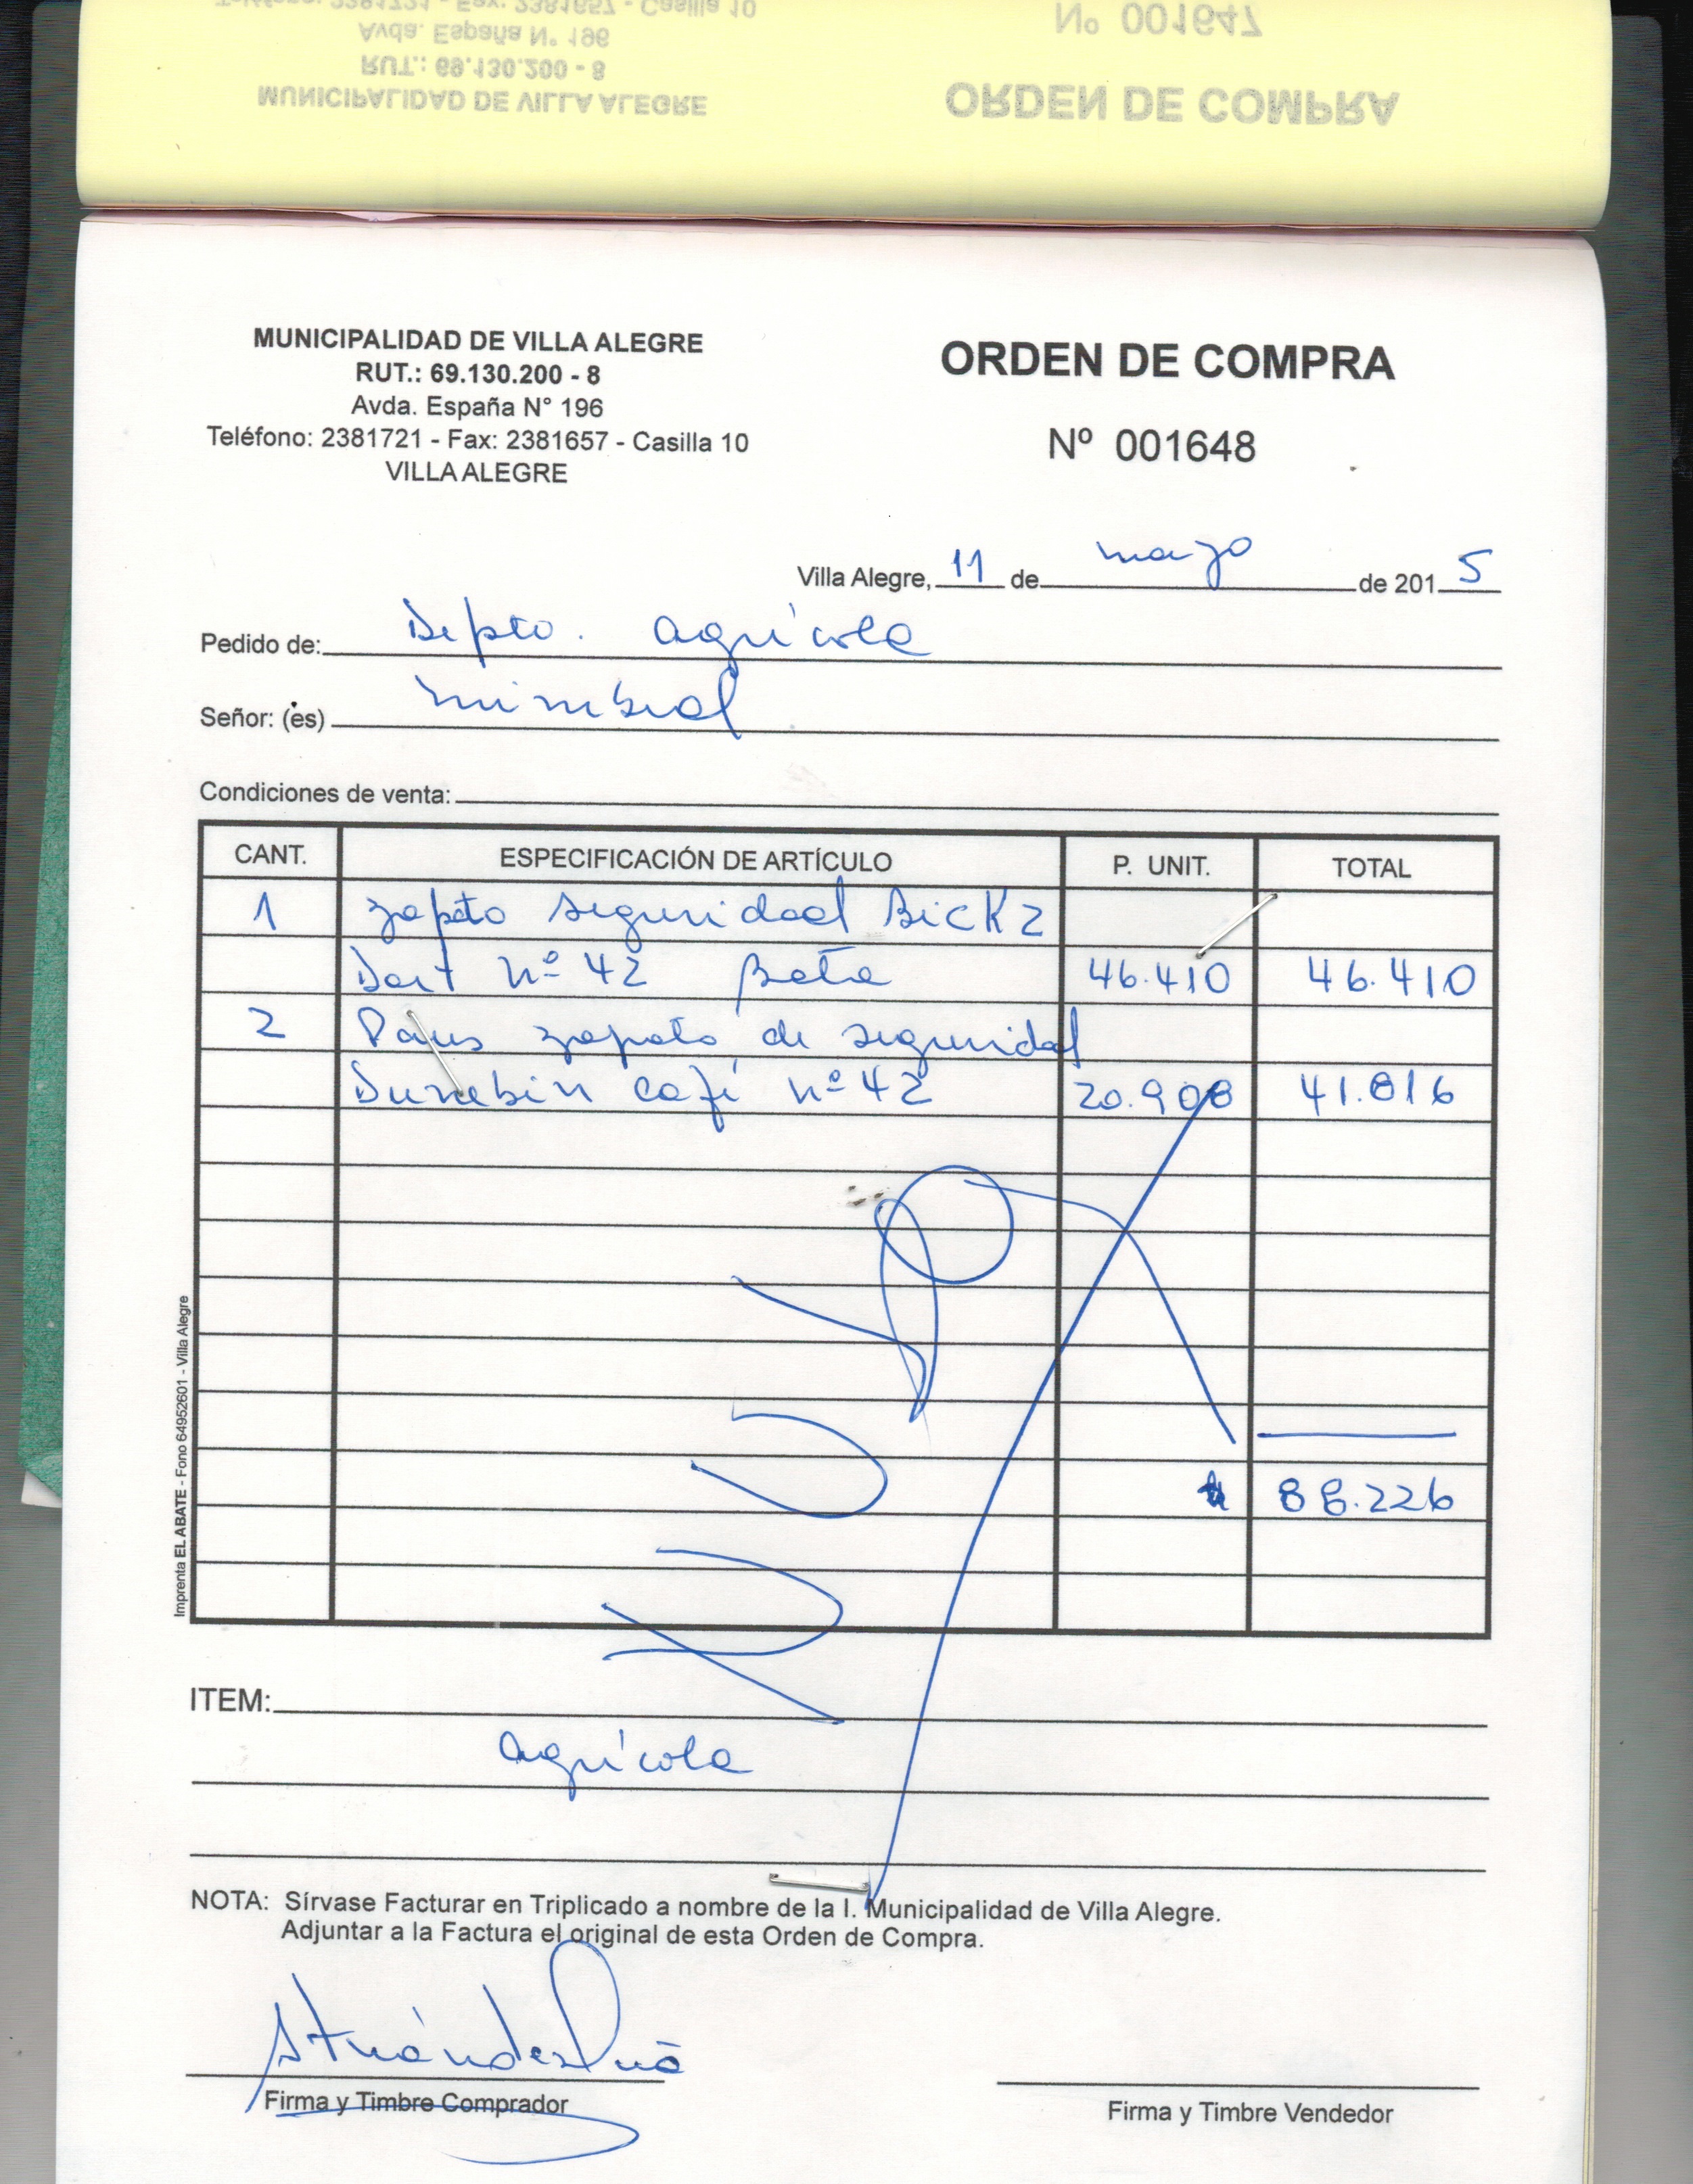 Teléfono: 2381721 - Fax: 2381657 - Casilla 10
Avda. España N° 196
RUT.: 69.130.200 - 8
MUNICIPALIDAD DE VILLA ALEGRE
Nº 001647
ORDEN DE COMPRA
MUNICIPALIDAD DE VILLA ALEGRE
RUT.: 69.130.200 - 8
Avda. España N° 196
Teléfono: 2381721 - Fax: 2381657 - Casilla 10
VILLA ALEGRE
ORDEN DE COMPRA
Nº 001648
Villa Alegre, 11 de marzo de 2015
Pedido de: Depto. agrícola
Señor: (es) mimbral
Condiciones de venta:
CANT. ESPECIFICACIÓN DE ARTÍCULO P. UNIT. TOTAL
1 zapato seguridad Bickz
Dart nº 42 Bata 46.410 46.410
2 Pares zapato de seguridad
café nº 42 20.908 41.816
88.226
NULA
Imprenta EL ABATE - Fono 64952601 - Villa Alegre
ITEM:
agrícola
NOTA: Sírvase Facturar en Triplicado a nombre de la I. Municipalidad de Villa Alegre.
Adjuntar a la Factura el original de esta Orden de Compra.
Firma y Timbre Comprador
Firma y Timbre Vendedor